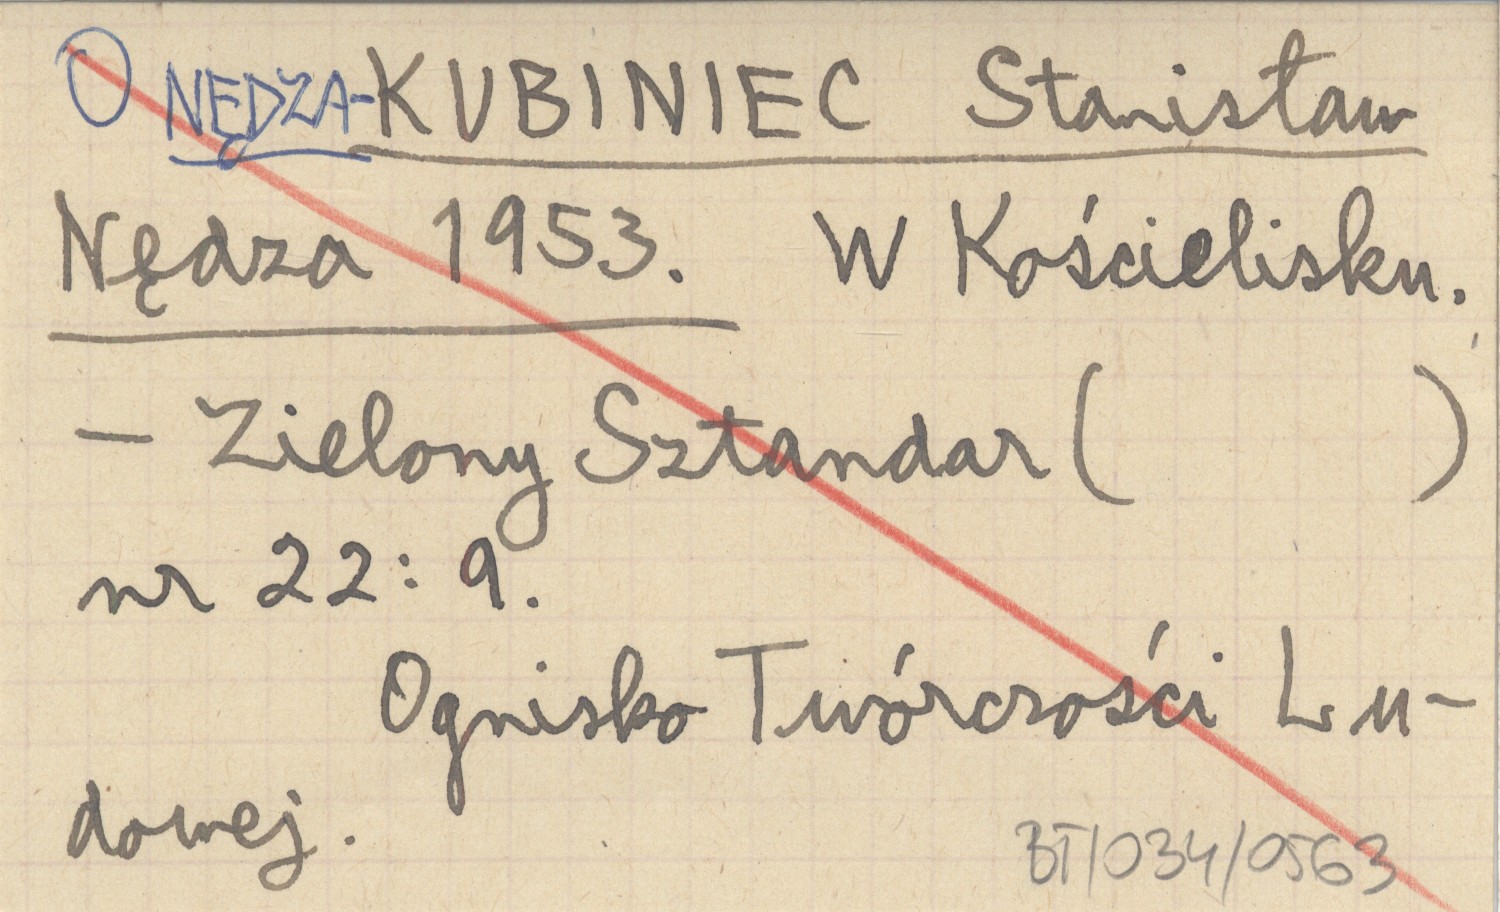 O NĘDZA-KUBINIEC Stanisław
Nędza 1953. W Kościelisku.
– Zielony Sztandar ( )
nr 22: 9.
Ognisko Twórczości Lu-
dowej.
BT/034/0563